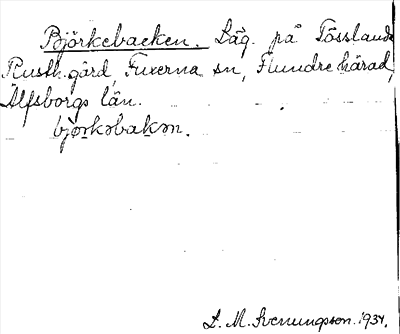 Björkebacken. Läg. på Tösslanda
Rusth.gård, Fuxerna sn, Flundre härad,
Älfsborgs län.
bjørkəbakən.
L. M. Svenungsson. 1934.